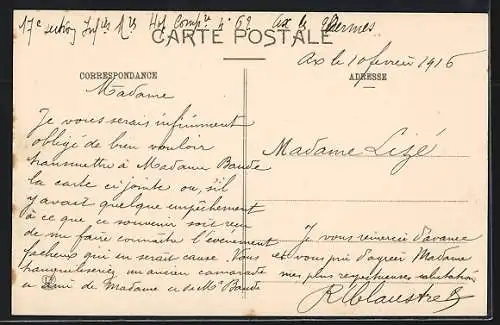 17e section Infres Mres Hop. Compre n° 62 Ax les Thermes
CARTE POSTALE
Ax le 10 fevrier 1916
CORRESPONDANCE
ADRESSE
Madame
Je vous serais infiniment
obligé de bien vouloir
transmettre à Madame Baude
la carte ci jointe ou, s'il
y avait quelque empêchement
à ce que ce souvenir soit reçu
de me faire connaître l'evenement
facheux qui en serait cause. Vous
tranquiliserez un ancien camarade
et ami de Madame et de Mr Baude
Madame Lizé
Je vous remercie d'avance
et vous prie d'agréer Madame
mes plus respectueuses salutations